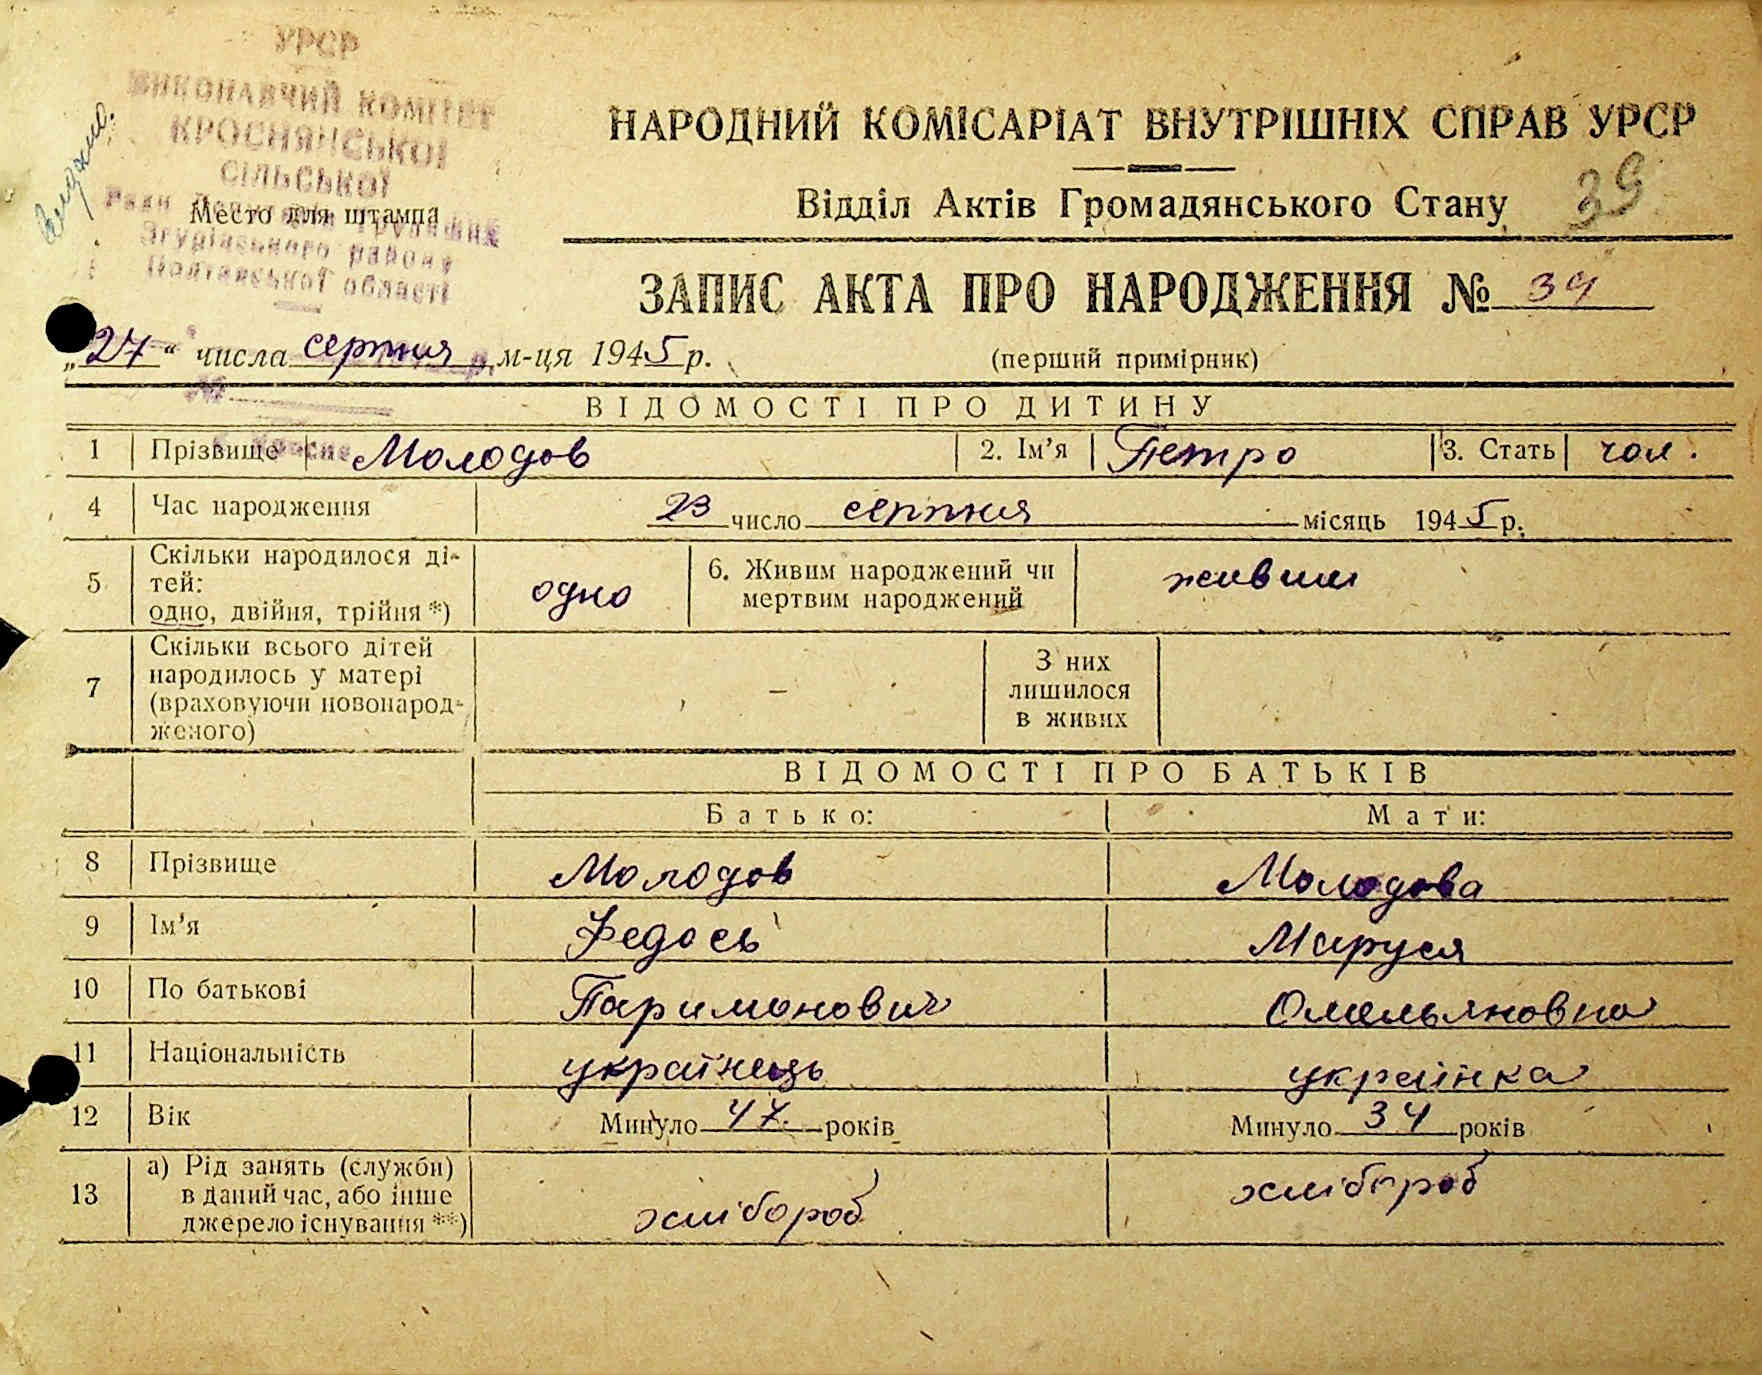 УРСР
ВИКОНАВЧИЙ КОМІТЕТ
КРОСНЯНСЬКОЇ
СІЛЬСЬКОЇ
Ради Депутатів Трудящих
Згурівського района
Полтавської області
Место для штампа
НАРОДНИЙ КОМІСАРІАТ ВНУТРІШНІХ СПРАВ УРСР
Відділ Актів Громадянського Стану
39
ЗАПИС АКТА ПРО НАРОДЖЕННЯ № 34
„27“ числа серпня м-ця 1945 р.
(перший примірник)
ВІДОМОСТІ ПРО ДИТИНУ
1 Прізвище Молодов 2. Ім’я Петро 3. Стать чол.
4 Час народження 23 число серпня місяць 1945 р.
5 Скільки народилося ді-
тей:
одно, двійня, трійня *)
одно
6. Живим народжений чи
мертвим народжений
живим
7 Скільки всього дітей
народилось у матері
(враховуючи новонарод-
женого)
-
З них
лишилося
в живих
ВІДОМОСТІ ПРО БАТЬКІВ
Батько: Мати:
8 Прізвище Молодов Молодова
9 Ім’я Федось Маруся
10 По батькові Паримонович Омельяновна
11 Національність українець українка
12 Вік Минуло 47. років Минуло 34 років
13 а) Рід занять (служби)
в даний час, або інше
джерело існування **)
хлібороб хлібороб